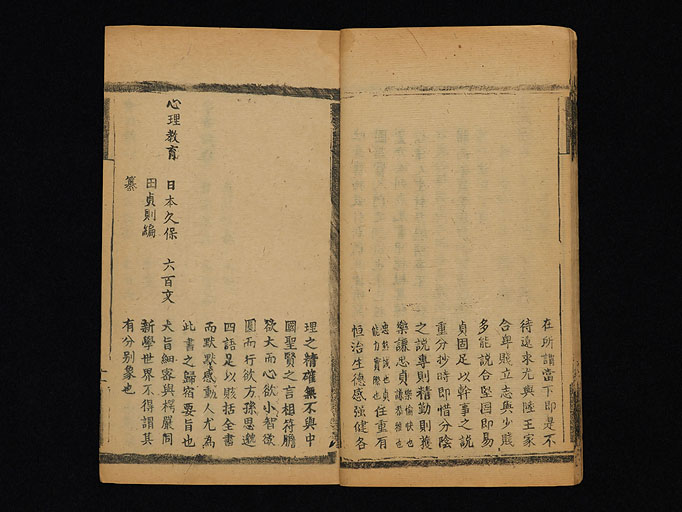 在所謂當下即是不
待遠求尤與陸王家
合卑賤立志與少賤
多能說合堅固即易
貞固足以幹事之說
重分抄時即惜分陰
之說專則精勤則獲
樂謙忠貞樂愉快也謙恭遜也
忠懇誠也貞能力實際也任重有
恒治生德感強健各
理之精確無不與中
國聖賢之言相符膽
欲大而心欲小智欲
圓而行欲方孫思邈
四語足以賅括全書
而默默感動人尤為
此書之歸宿要旨也
大旨細密與楞嚴同
新學世界不得謂其
有分別象也
心理教育 日本久保 六百文
田貞則編
纂